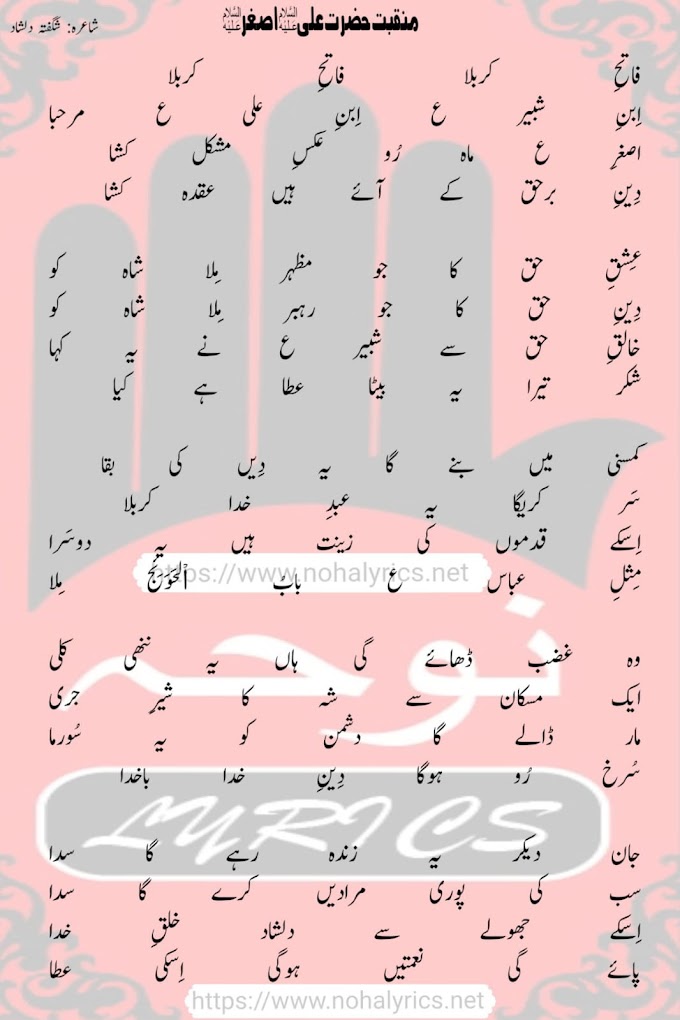 منقبت حضرت علی علیہ السلام اصغر علیہ السلام
شاعرہ: شگفتہ دلشاد
فاتحِ کربلا فاتحِ کربلا
اِبنِ شبیر ع اِبنِ علی ع مرحبا
اصغرِ ع ماہ رُو عکسِ مشکل کشا
دِینِ برحق کے آئے ہیں عقدہ کشا
عِشقِ حق کا جو مظہر مِلا شاہ کو
دِینِ حق کا جو رہبر مِلا شاہ کو
خالقِ حق سے شبیر ع نے یہ کہا
شکر تیرا یہ بیٹا عطا ہے کیا
کمسنی میں بنے گا یہ دِیں کی بقا
سَر کریگا یہ عبدِ خدا کربلا
اِسکے قدموں کی زینت ہیں یہ دوسَرا
مِثلِ عباس ع بابُ اْلحَوَئج مِلا
https://www.nohalyrics.net
وہ غضب ڈھائے گی ہاں یہ ننھی کلی
ایک مسکان سے شہ کا شیرِ جری
مار ڈالے گا دشمن کو یہ سُورما
سُرخ رُو ہوگا دِینِ خدا باخدا
نوحہ
LYRICS
جان دیکر یہ زندہ رہے گا سدا
سب کی پوری مرادیں کرے گا سدا
اِسکے جھولے سے دلشاد خلقِ خدا
پائے گی نعمتیں ہوگی اِسکی عطا
https://www.nohalyrics.net